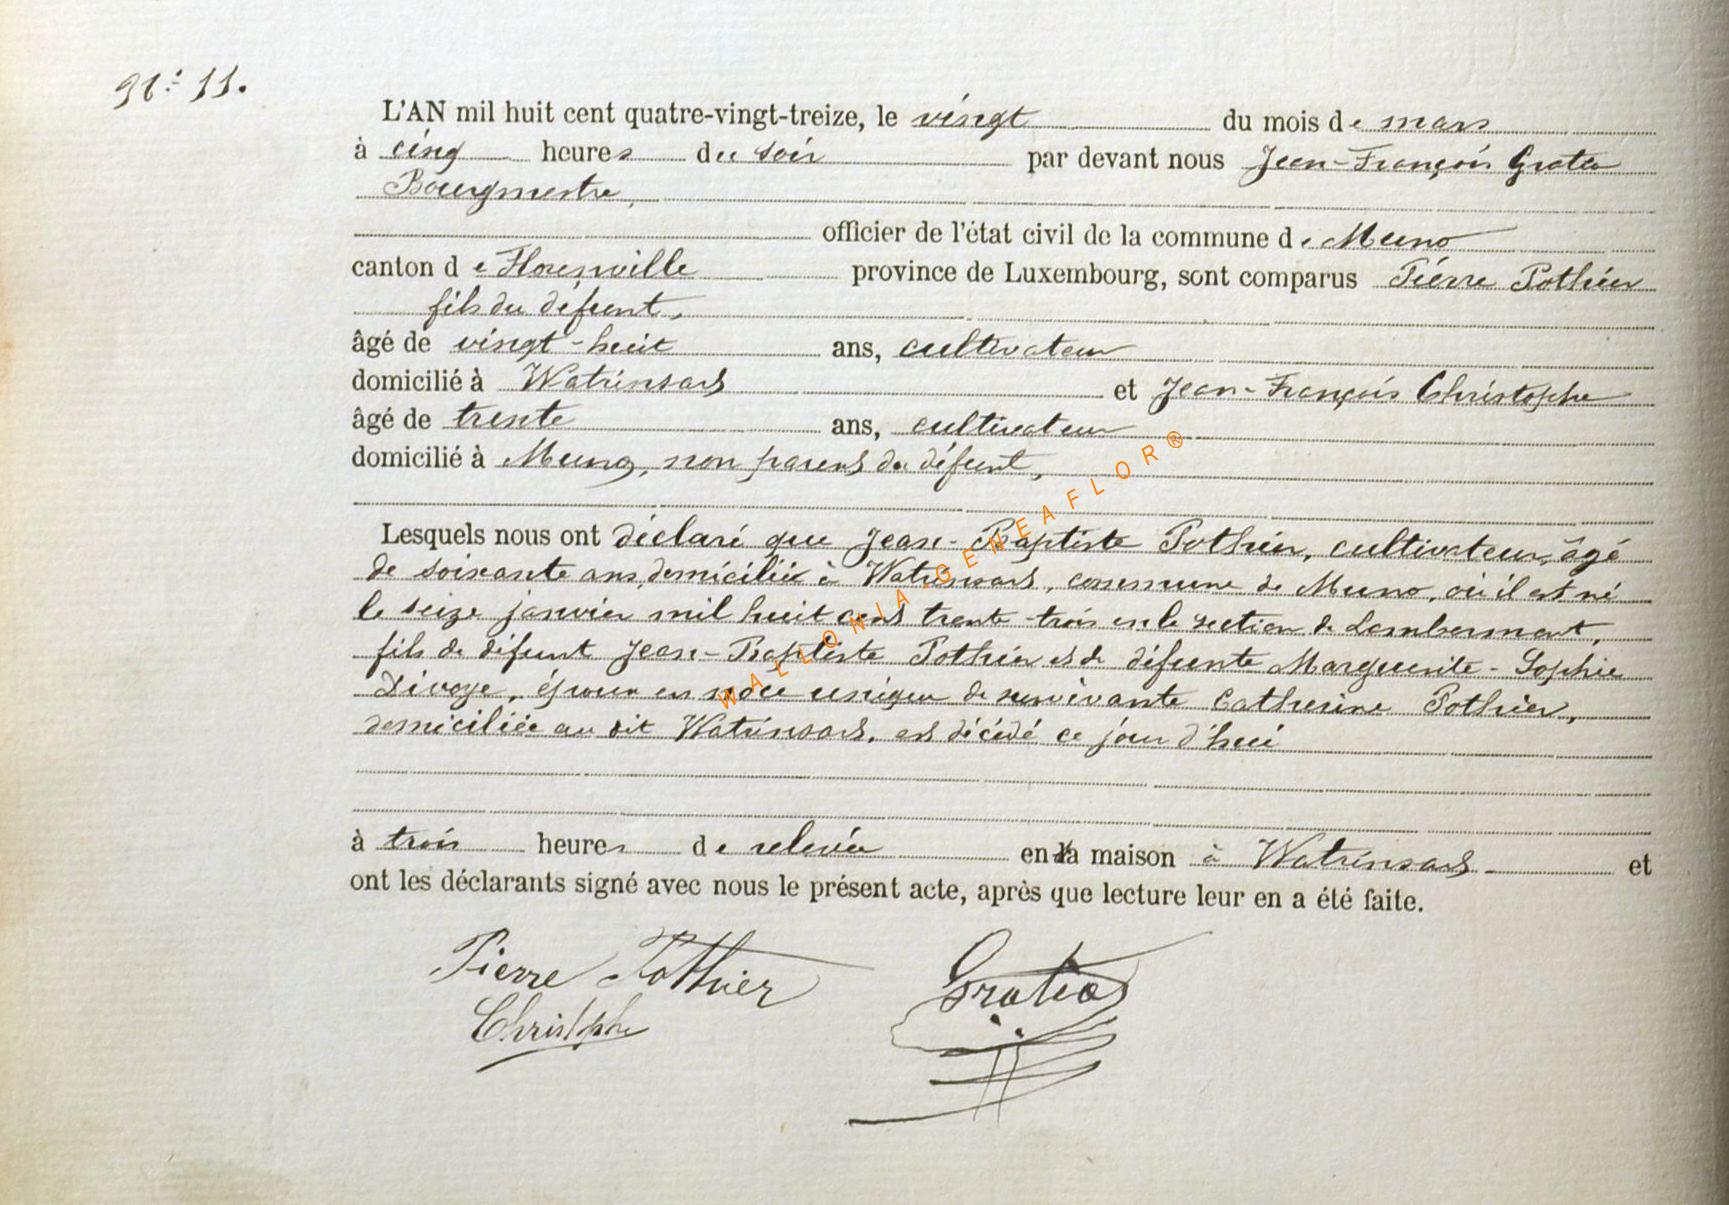 N° 11.
L'AN mil huit cent quatre-vingt-treize, le vingt du mois de mars
à cinq heures du soir par devant nous Jean-François Gratia
Bourgmestre,
officier de l'état civil de la commune de Muno
canton de Florenville province de Luxembourg, sont comparus Pierre Pothier
fils du défunt,
âgé de vingt-huit ans, cultivateur
domicilié à Watrinsart et Jean-François Christophe
âgé de trente ans, cultivateur
domicilié à Muno, non parent du défunt,
Lesquels nous ont déclaré que Jean-Baptiste Pothier, cultivateur, âgé
de soixante ans, domicilié à Watrinsart, commune de Muno, où il est né
le seize janvier mil huit cent trente-trois en la section de Lambermont,
fils de défunt Jean-Baptiste Pothier et de défunte Marguerite-Sophie
Divoye, époux en noce unique de survivante Catherine Pothier,
domiciliée au dit Watrinsart, est décédé ce jour d'hui
à trois heures de relevée en sa maison à Watrinsart et
ont les déclarants signé avec nous le présent acte, après que lecture leur en a été faite.
Pierre Pothier Gratia
Christophe
WALLONIA-GENEAFLOR®